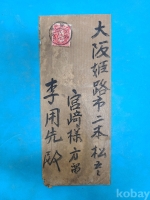 大阪姫路市二本松十
宮崎様方
李用先殿
kobay